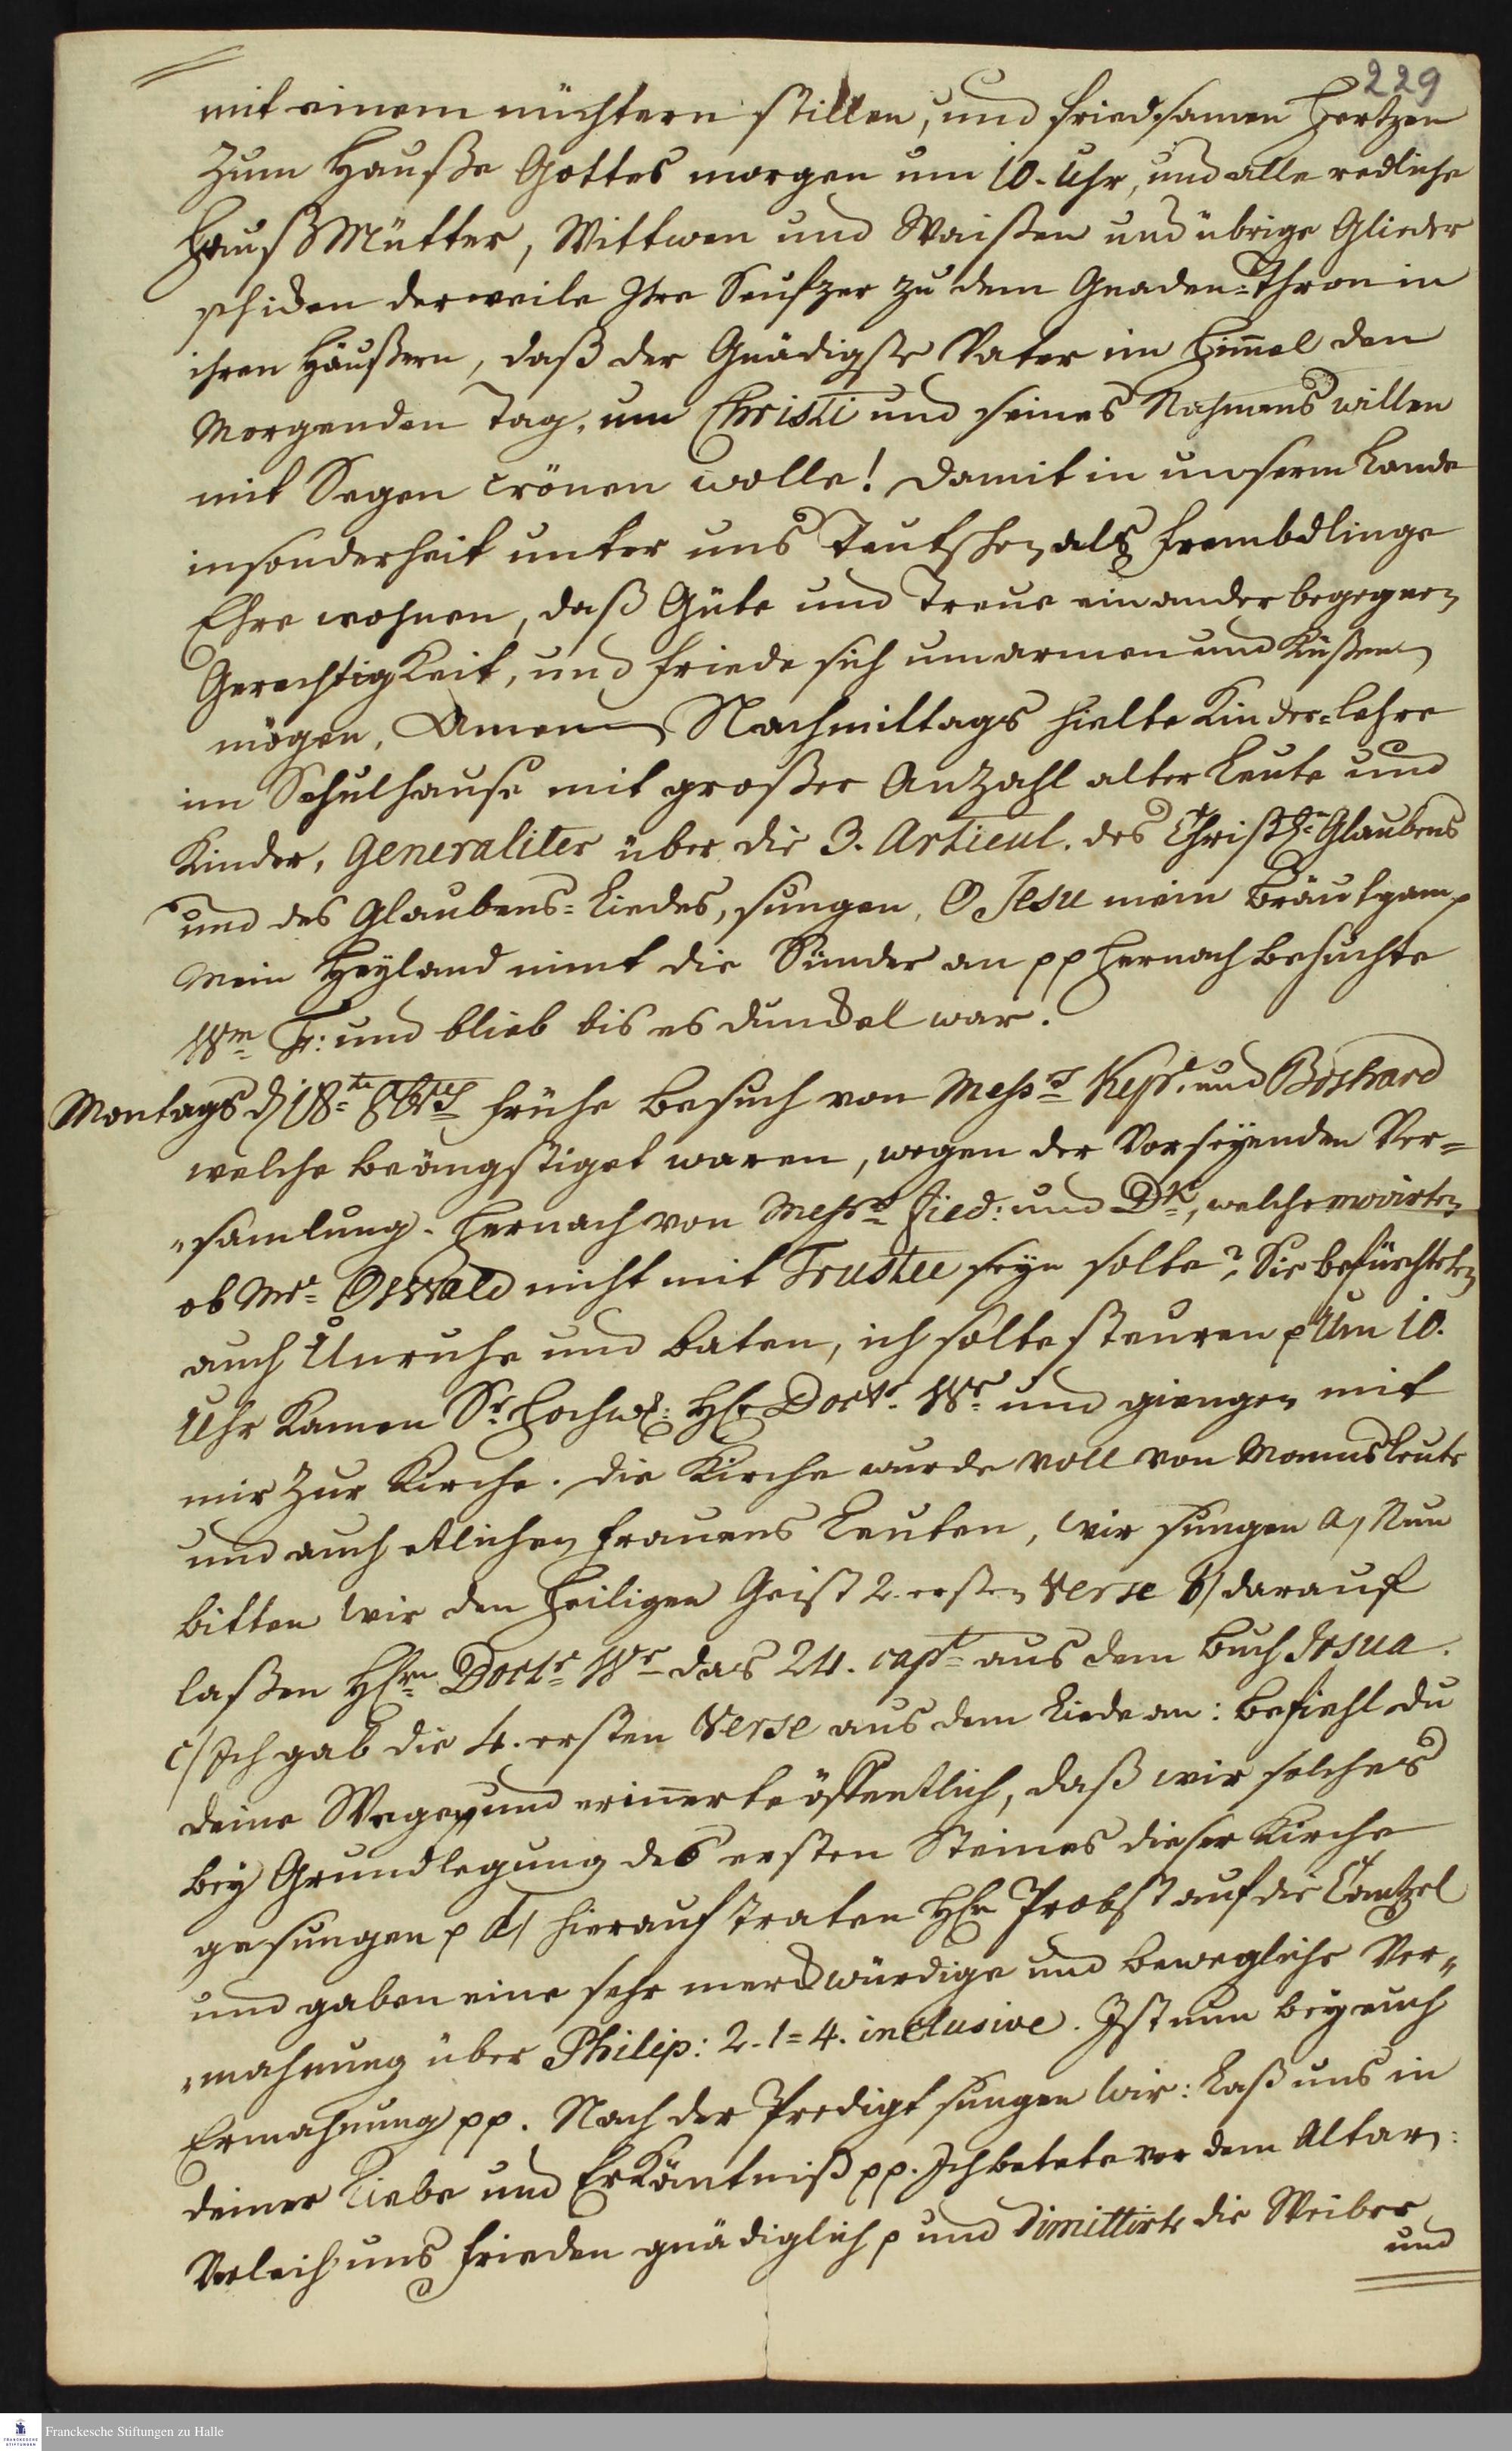 229
mit einem nüchtern stillen, und friedsamen Hertzen
zum Hauße Gottes morgen um 10. Uhr, und alle redliche
Hauß Mütter, Wittwen und Waißen und übrige Glieder
schicken derweile Ihre Seufzer zu dem Gnaden-Thron in
ihren Häußern, daß der Gnädigste Vater im Himmel den
Morgenden Tag, um Christi und seines Nahmens willen
mit Segen crönen wolle! damit in unserm Lande
insonderheit unter uns Teutschen als Frembdlinge
Ehre wohnen, daß Güte und Treue einander begegnen
Gerechtigkeit, und Friede sich umarmen und Küßen
mögen, Amen Nachmittags hielte Kinder-Lehre
im Schulhause mit großer Anzahl alter Leute und
Kinder, Generaliter über die 3. Articul. des Christl. Glaubens
und des Glaubens-Liedes, sungen, O Jesu mein Bräutgam p
Mein Heyland nimt die Sünder an pp Hernach besuchte
Wm F: und blieb bis es dunckel war.
Montags d 18te 8br frühe Besuch von Messrs Kepl. und Boshard
welche beängstiget waren, wegen der Vorseyenden Ver-
samlung. Hernach von Messrs Fied: und Dk, welche movirten
ob Mr Oswald nicht mit Trustee seyn solte? Sie befürchteten
auch Unruhe und baten, ich solte steuren p Um 10.
Uhr kamen Sr Hochw: HE Doctr Wr und giengen mit
mir zur Kirche. Die Kirche wurde voll von Mannsleute
und auch etlichen Frauens Leuten, wir sungen a, Nun
bitten wir den Heiligen Geist 2. ersten Verse b, darauf
laßen HErn Doctr Wr das 24. capt aus dem Buch Josua.
c, Ich gab die 4. ersten Verse aus dem Liede an: Befiehl du
deine Wege p und erinnerte öffentlich, daß wir solches
bey Grundlegung des ersten Steines dieser Kirche
gesungen p d, hierauf traten HE Probst auf die Cantzel
und gaben eine sehr merckwürdige und bewegliche Ver-
mahnung über Philip: 2. 1=4. inclusive. Ist nun bey euch
Ermahnung pp. Nach der Predigt sungen wir: Laß uns in
deiner Liebe und Erkäntniß pp. Ich betete vor dem Altar:
Verleih uns Frieden gnädiglich p und dimittirte die Weiber
und
Franckesche Stiftungen zu Halle